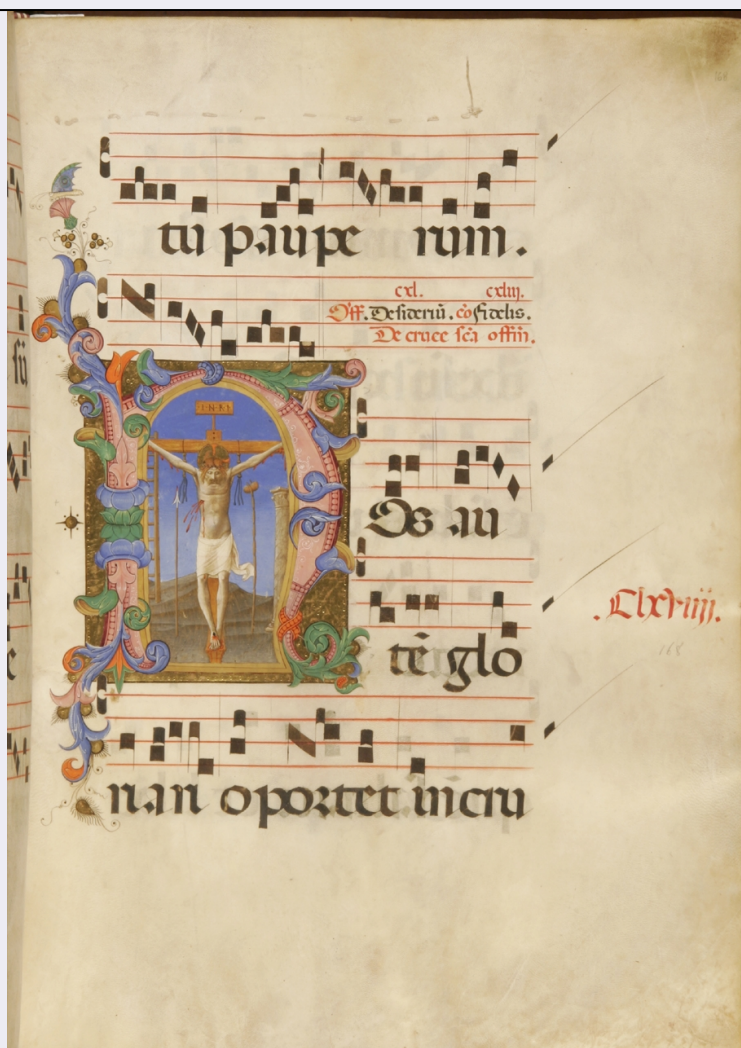 tū paupe rum.
cxl. cxliij.
Off. Desideriū. cō Fidelis.
De cruce scā offm̄.
I·N·R·I
Nos au
tē glo
.Clxviiij.
165
riari oportet in cru